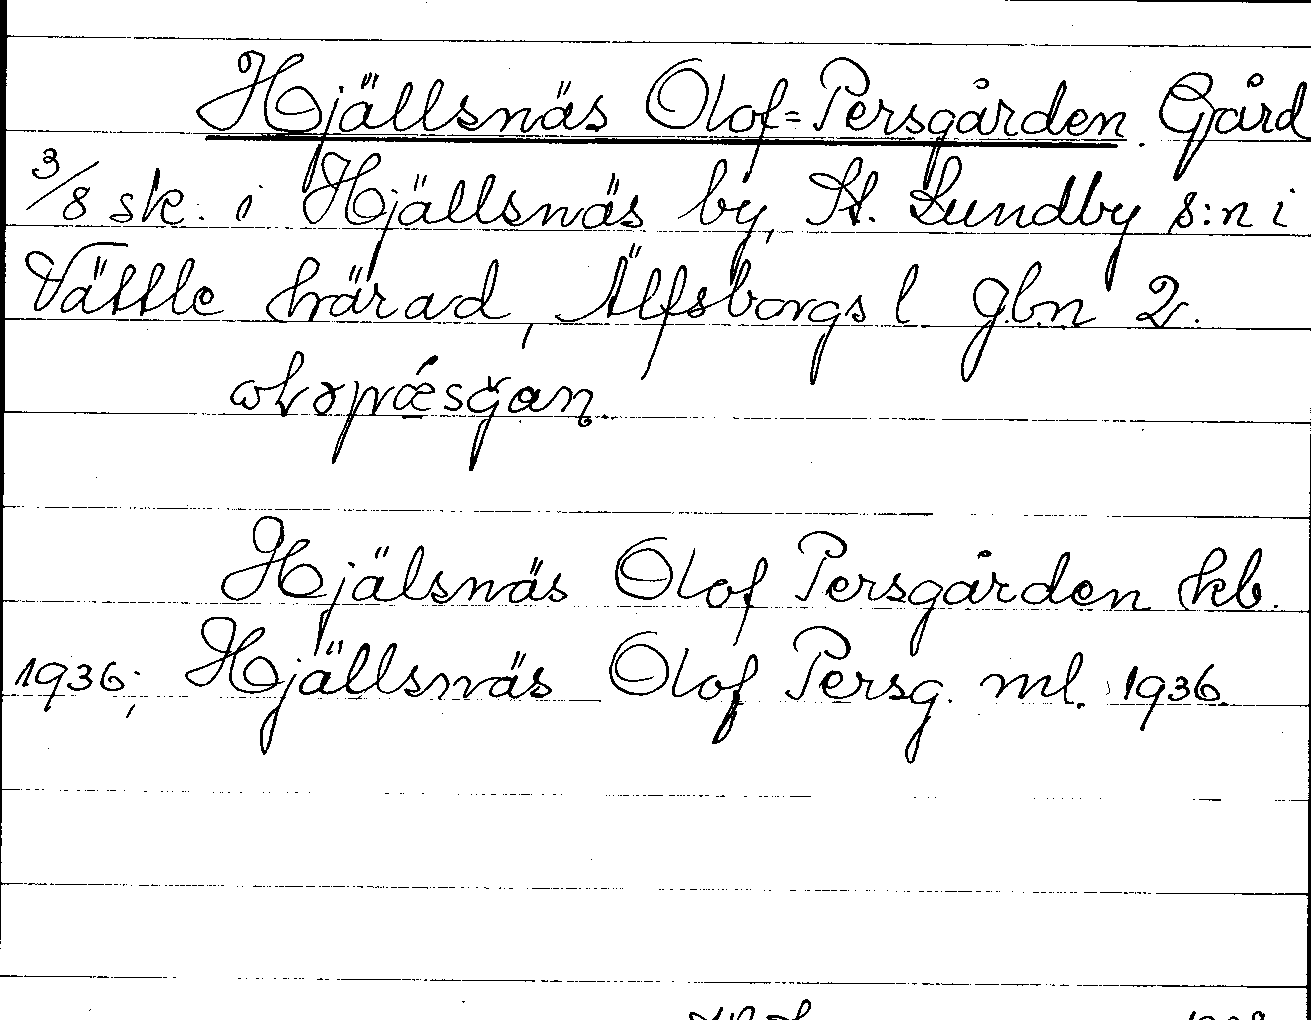 Hjällsnäs Olof=Persgården. Gård
3/8 sk. i Hjällsnäs by, St. Lundby s:n i
Vättle härad, Älfsborgs l. Gbn 2.
Hjälsnäs Olof Persgården kb.
1936; Hjällsnäs Olof Persg. ml. 1936.